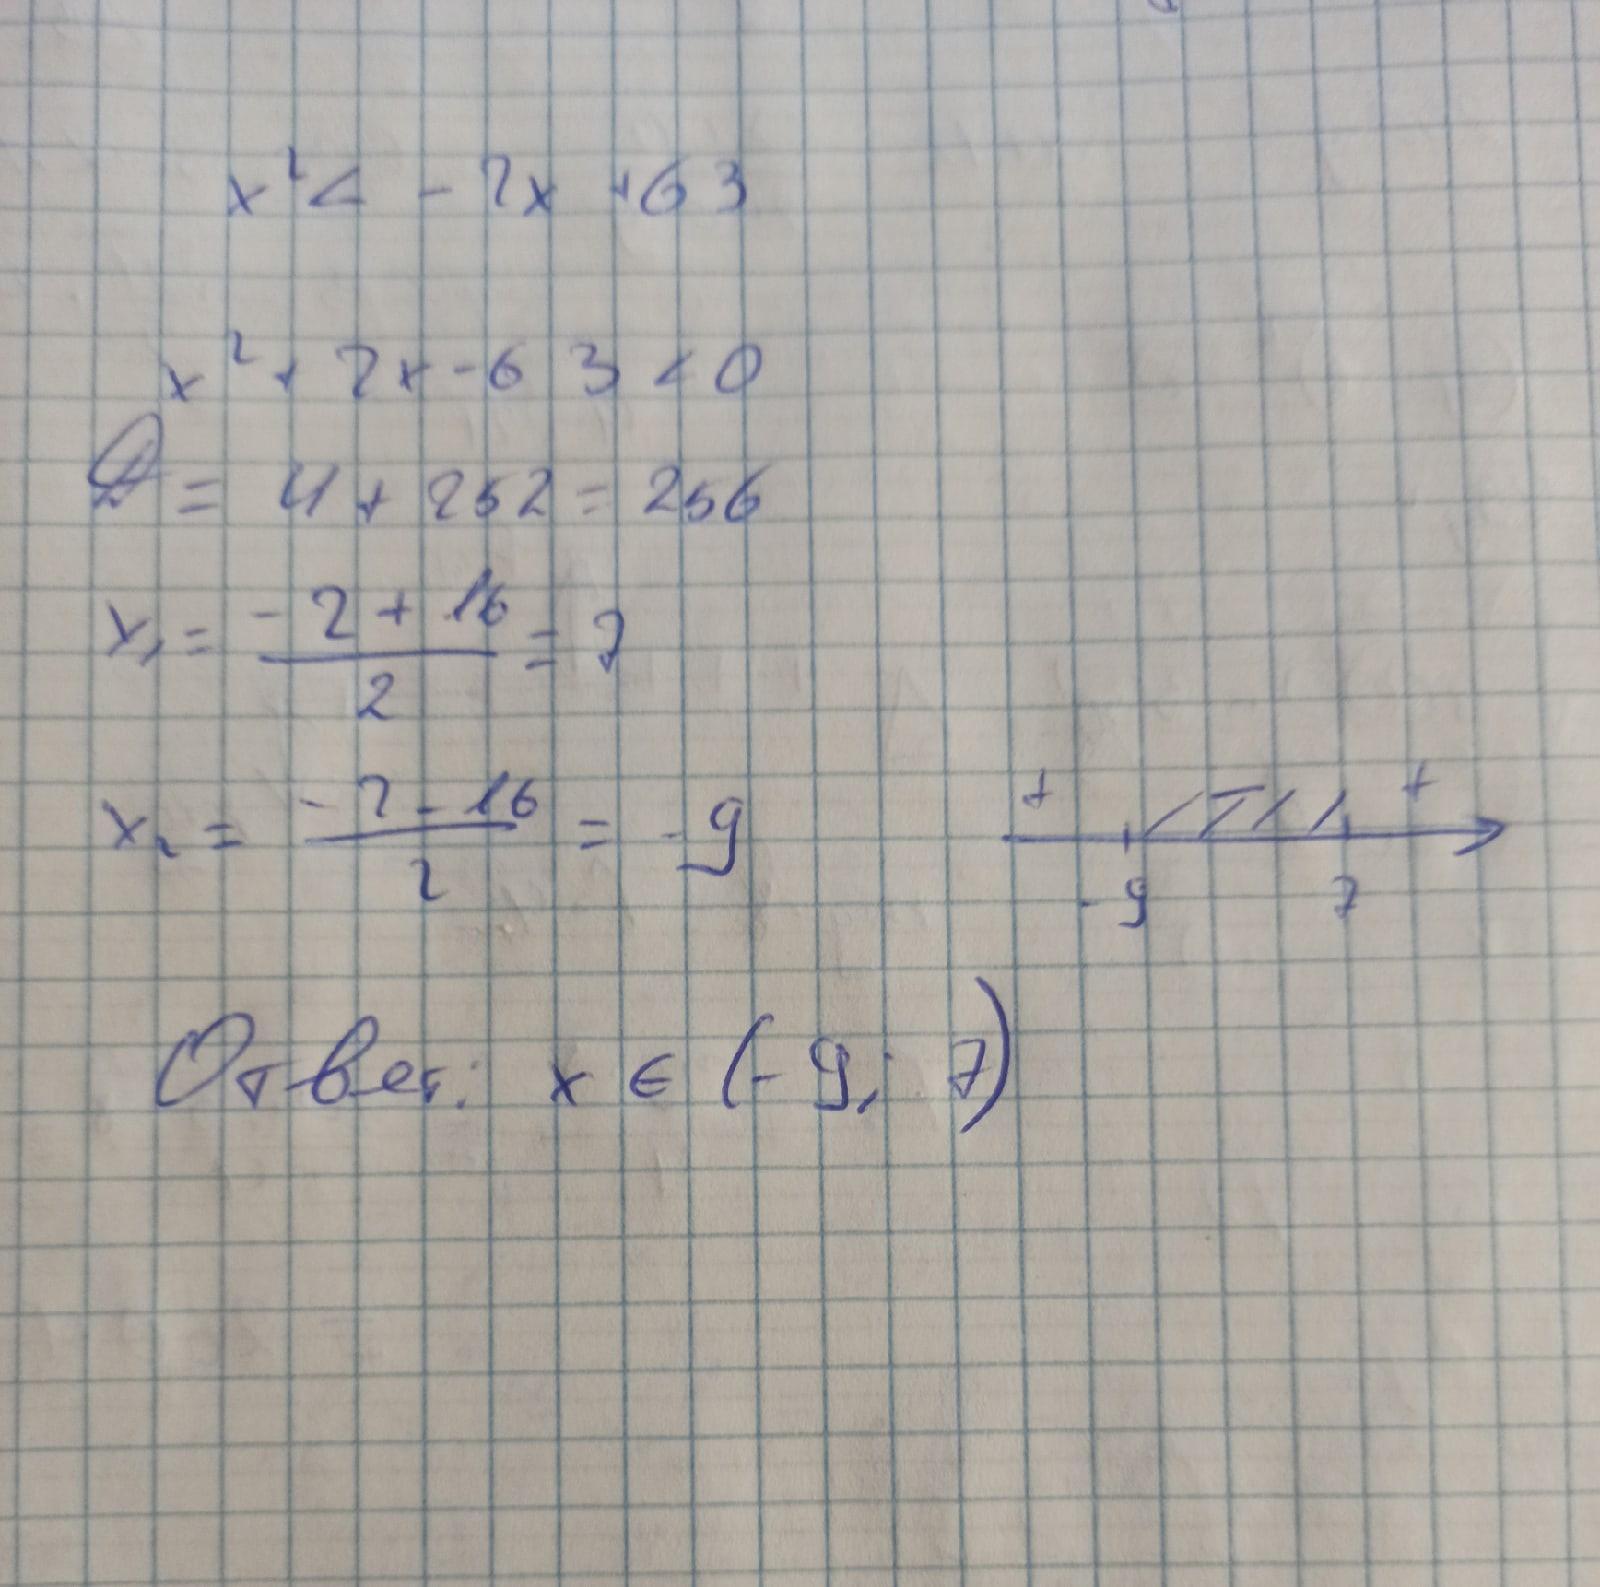 x² < - 2x + 63
x² + 2x - 63 < 0
D = 4 + 252 = 256
x₁ = (-2 + 16)/2 = 7
x₂ = (-2 - 16)/2 = -9
+ - +
-9 7
Ответ: x ∈ (-9; 7)